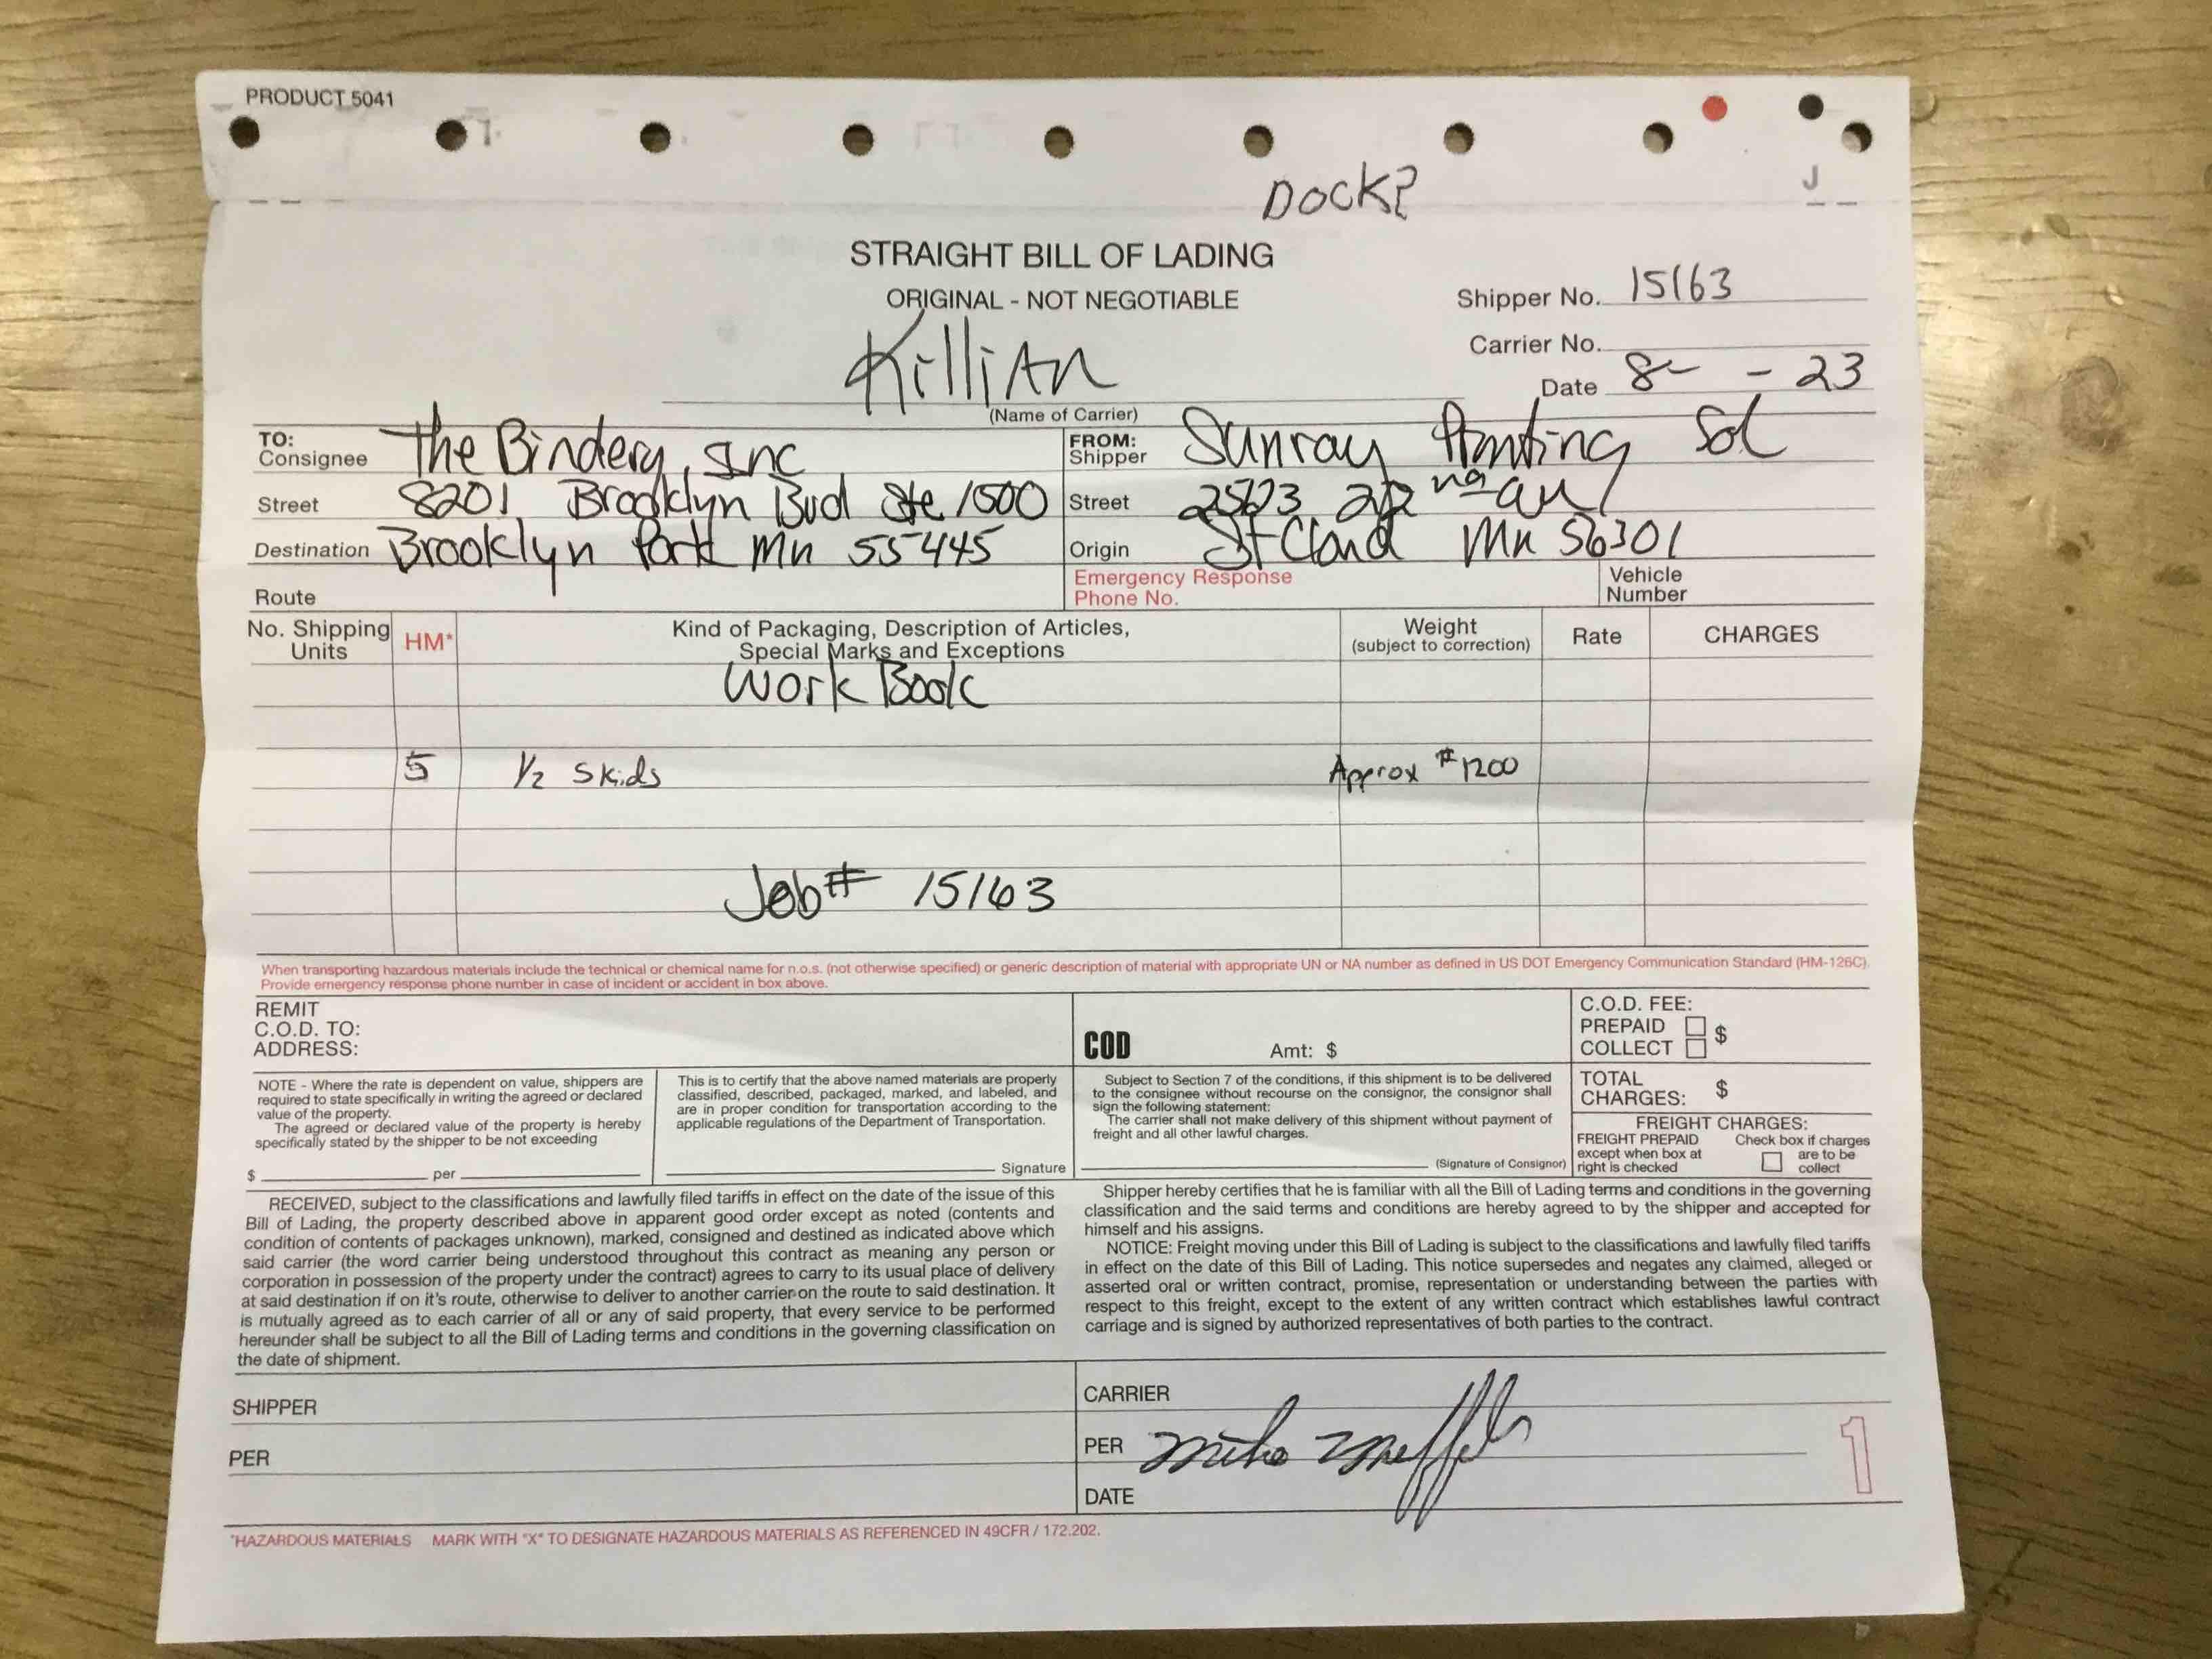 PRODUCT 5041
DOCK?
STRAIGHT BILL OF LADING
ORIGINAL - NOT NEGOTIABLE
Shipper No. 15163
Carrier No.
Killian
(Name of Carrier)
Date 8- - 23
TO: Consignee The Bindery, Inc
FROM: Shipper Sunray Printing Sol
Street 8201 Brooklyn Bvd Ste 1500
Street
Destination Brooklyn Park Mn 55445
Origin St Cloud Mn 56301
Route
Emergency Response Phone No.
Vehicle Number
No. Shipping Units
HM*
Kind of Packaging, Description of Articles,
Special Marks and Exceptions
Weight
(subject to correction)
Rate
CHARGES
Work Book
5 1/2 Skids Approx #1200
Job# 15163
When transporting hazardous materials include the technical or chemical name for n.o.s. (not otherwise specified) or generic description of material with appropriate UN or NA number as defined in US DOT Emergency Communication Standard (HM-126C).
Provide emergency response phone number in case of incident or accident in box above.
REMIT
C.O.D. TO:
ADDRESS:
COD Amt: $
C.O.D. FEE:
PREPAID $
COLLECT
NOTE - Where the rate is dependent on value, shippers are
required to state specifically in writing the agreed or declared
value of the property.
The agreed or declared value of the property is hereby
specifically stated by the shipper to be not exceeding
$ per
This is to certify that the above named materials are properly
classified, described, packaged, marked, and labeled, and
are in proper condition for transportation according to the
applicable regulations of the Department of Transportation.
Signature
Subject to Section 7 of the conditions, if this shipment is to be delivered
to the consignee without recourse on the consignor, the consignor shall
sign the following statement:
The carrier shall not make delivery of this shipment without payment of
freight and all other lawful charges.
(Signature of Consignor)
TOTAL
CHARGES: $
FREIGHT CHARGES:
FREIGHT PREPAID
except when box at
right is checked
Check box if charges
are to be
collect
RECEIVED, subject to the classifications and lawfully filed tariffs in effect on the date of the issue of this
Bill of Lading, the property described above in apparent good order except as noted (contents and
condition of contents of packages unknown), marked, consigned and destined as indicated above which
said carrier (the word carrier being understood throughout this contract as meaning any person or
corporation in possession of the property under the contract) agrees to carry to its usual place of delivery
at said destination if on it's route, otherwise to deliver to another carrier on the route to said destination. It
is mutually agreed as to each carrier of all or any of said property, that every service to be performed
hereunder shall be subject to all the Bill of Lading terms and conditions in the governing classification on
the date of shipment.
Shipper hereby certifies that he is familiar with all the Bill of Lading terms and conditions in the governing
classification and the said terms and conditions are hereby agreed to by the shipper and accepted for
himself and his assigns.
NOTICE: Freight moving under this Bill of Lading is subject to the classifications and lawfully filed tariffs
in effect on the date of this Bill of Lading. This notice supersedes and negates any claimed, alleged or
asserted oral or written contract, promise, representation or understanding between the parties with
respect to this freight, except to the extent of any written contract which establishes lawful contract
carriage and is signed by authorized representatives of both parties to the contract.
SHIPPER
PER
CARRIER
PER Mike
DATE
1
*HAZARDOUS MATERIALS MARK WITH "X" TO DESIGNATE HAZARDOUS MATERIALS AS REFERENCED IN 49CFR / 172.202.